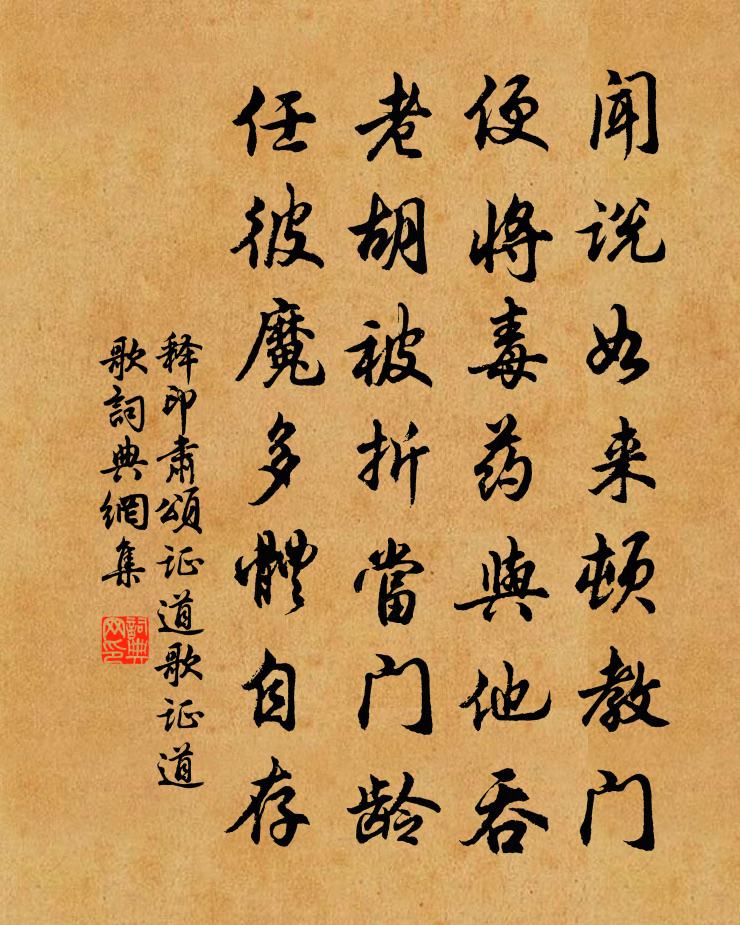 闻说如来顿教门
便将毒药與他吞
老胡被折當门龄
任彼魔多體自存
释印肃颂证道歌证道
歌詞典網集
詞典
网印